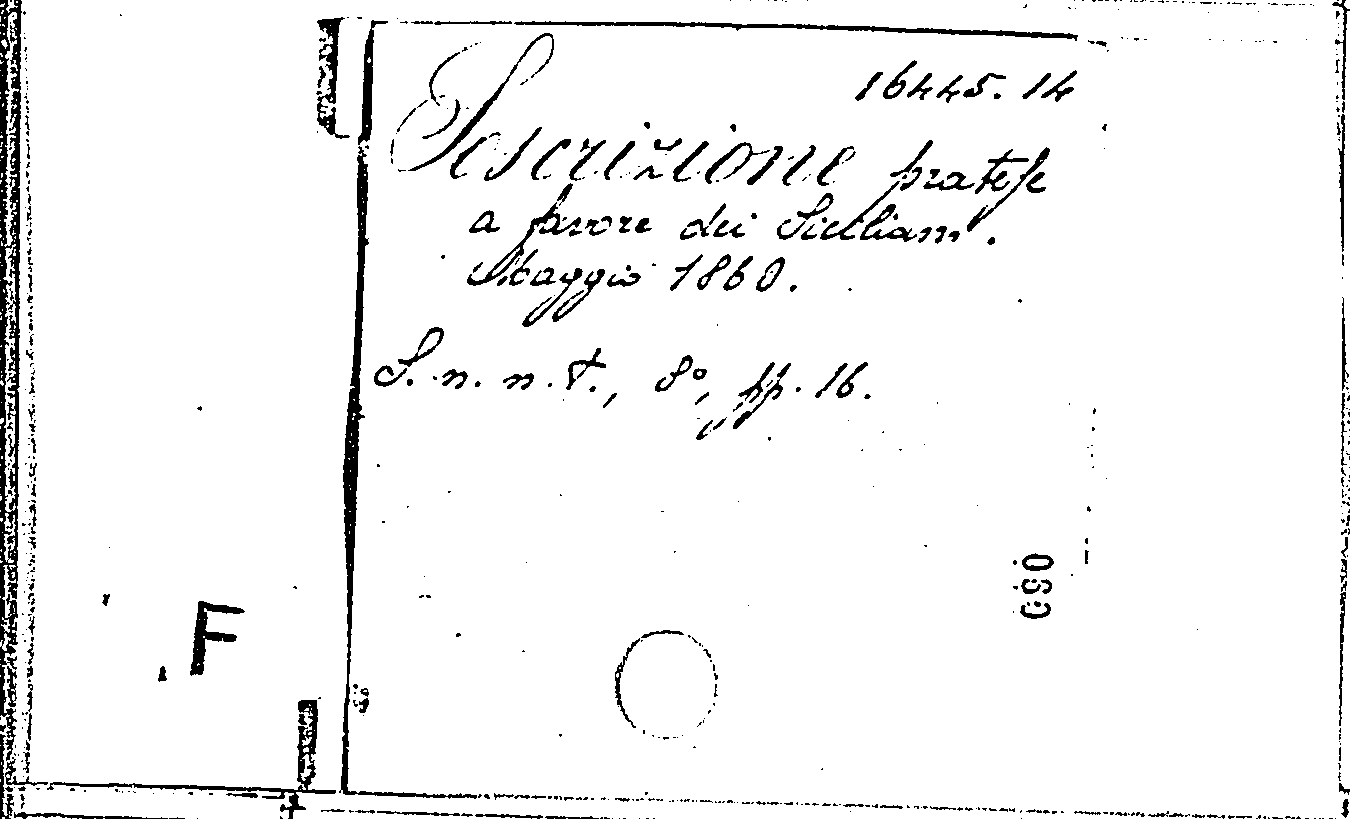 16445.14
Soscrizione pratese
a favore dei Siciliani.
Maggio 1860.
S. n. n. t., 8°, pp. 16.
090
F